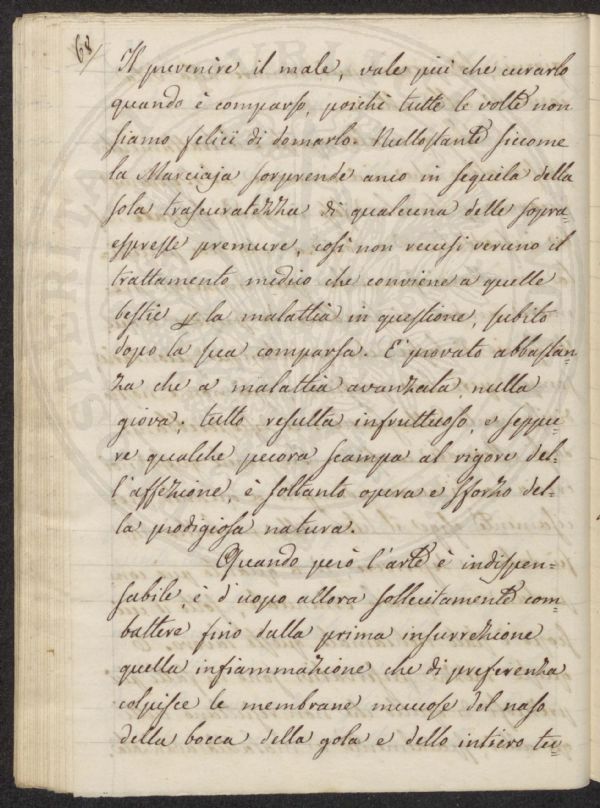 68/
Il prevenire il male, vale più che curarlo
quando è comparso, poichè tutte le volte non
siamo felici di domarlo. Nullostante siccome
la Marciaja sorprende anco in sequela della
sola trascuratezza di qualcuna delle sopra=
espresse premure, così non recusi veruno il
trattamento medico che conviene a quelle
bestie p la malattia in questione, subito
dopo la sua comparsa. E' provato abbastan=
za che a malattia avanzata nulla
giova; tutto resulta infruttuoso, e seppu=
re qualche pecora scampa al rigore del=
l'affezione, è soltanto opera e sforzo del=
la prodigiosa natura.
Quando però l'arte è indispen=
sabile, è d'uopo allora sollecitamente com=
battere fino dalla prima insurrezione
quella infiammazione che di preferenza
colpisce le membrane muccose del naso
della bocca della gola e dello intiero tu=